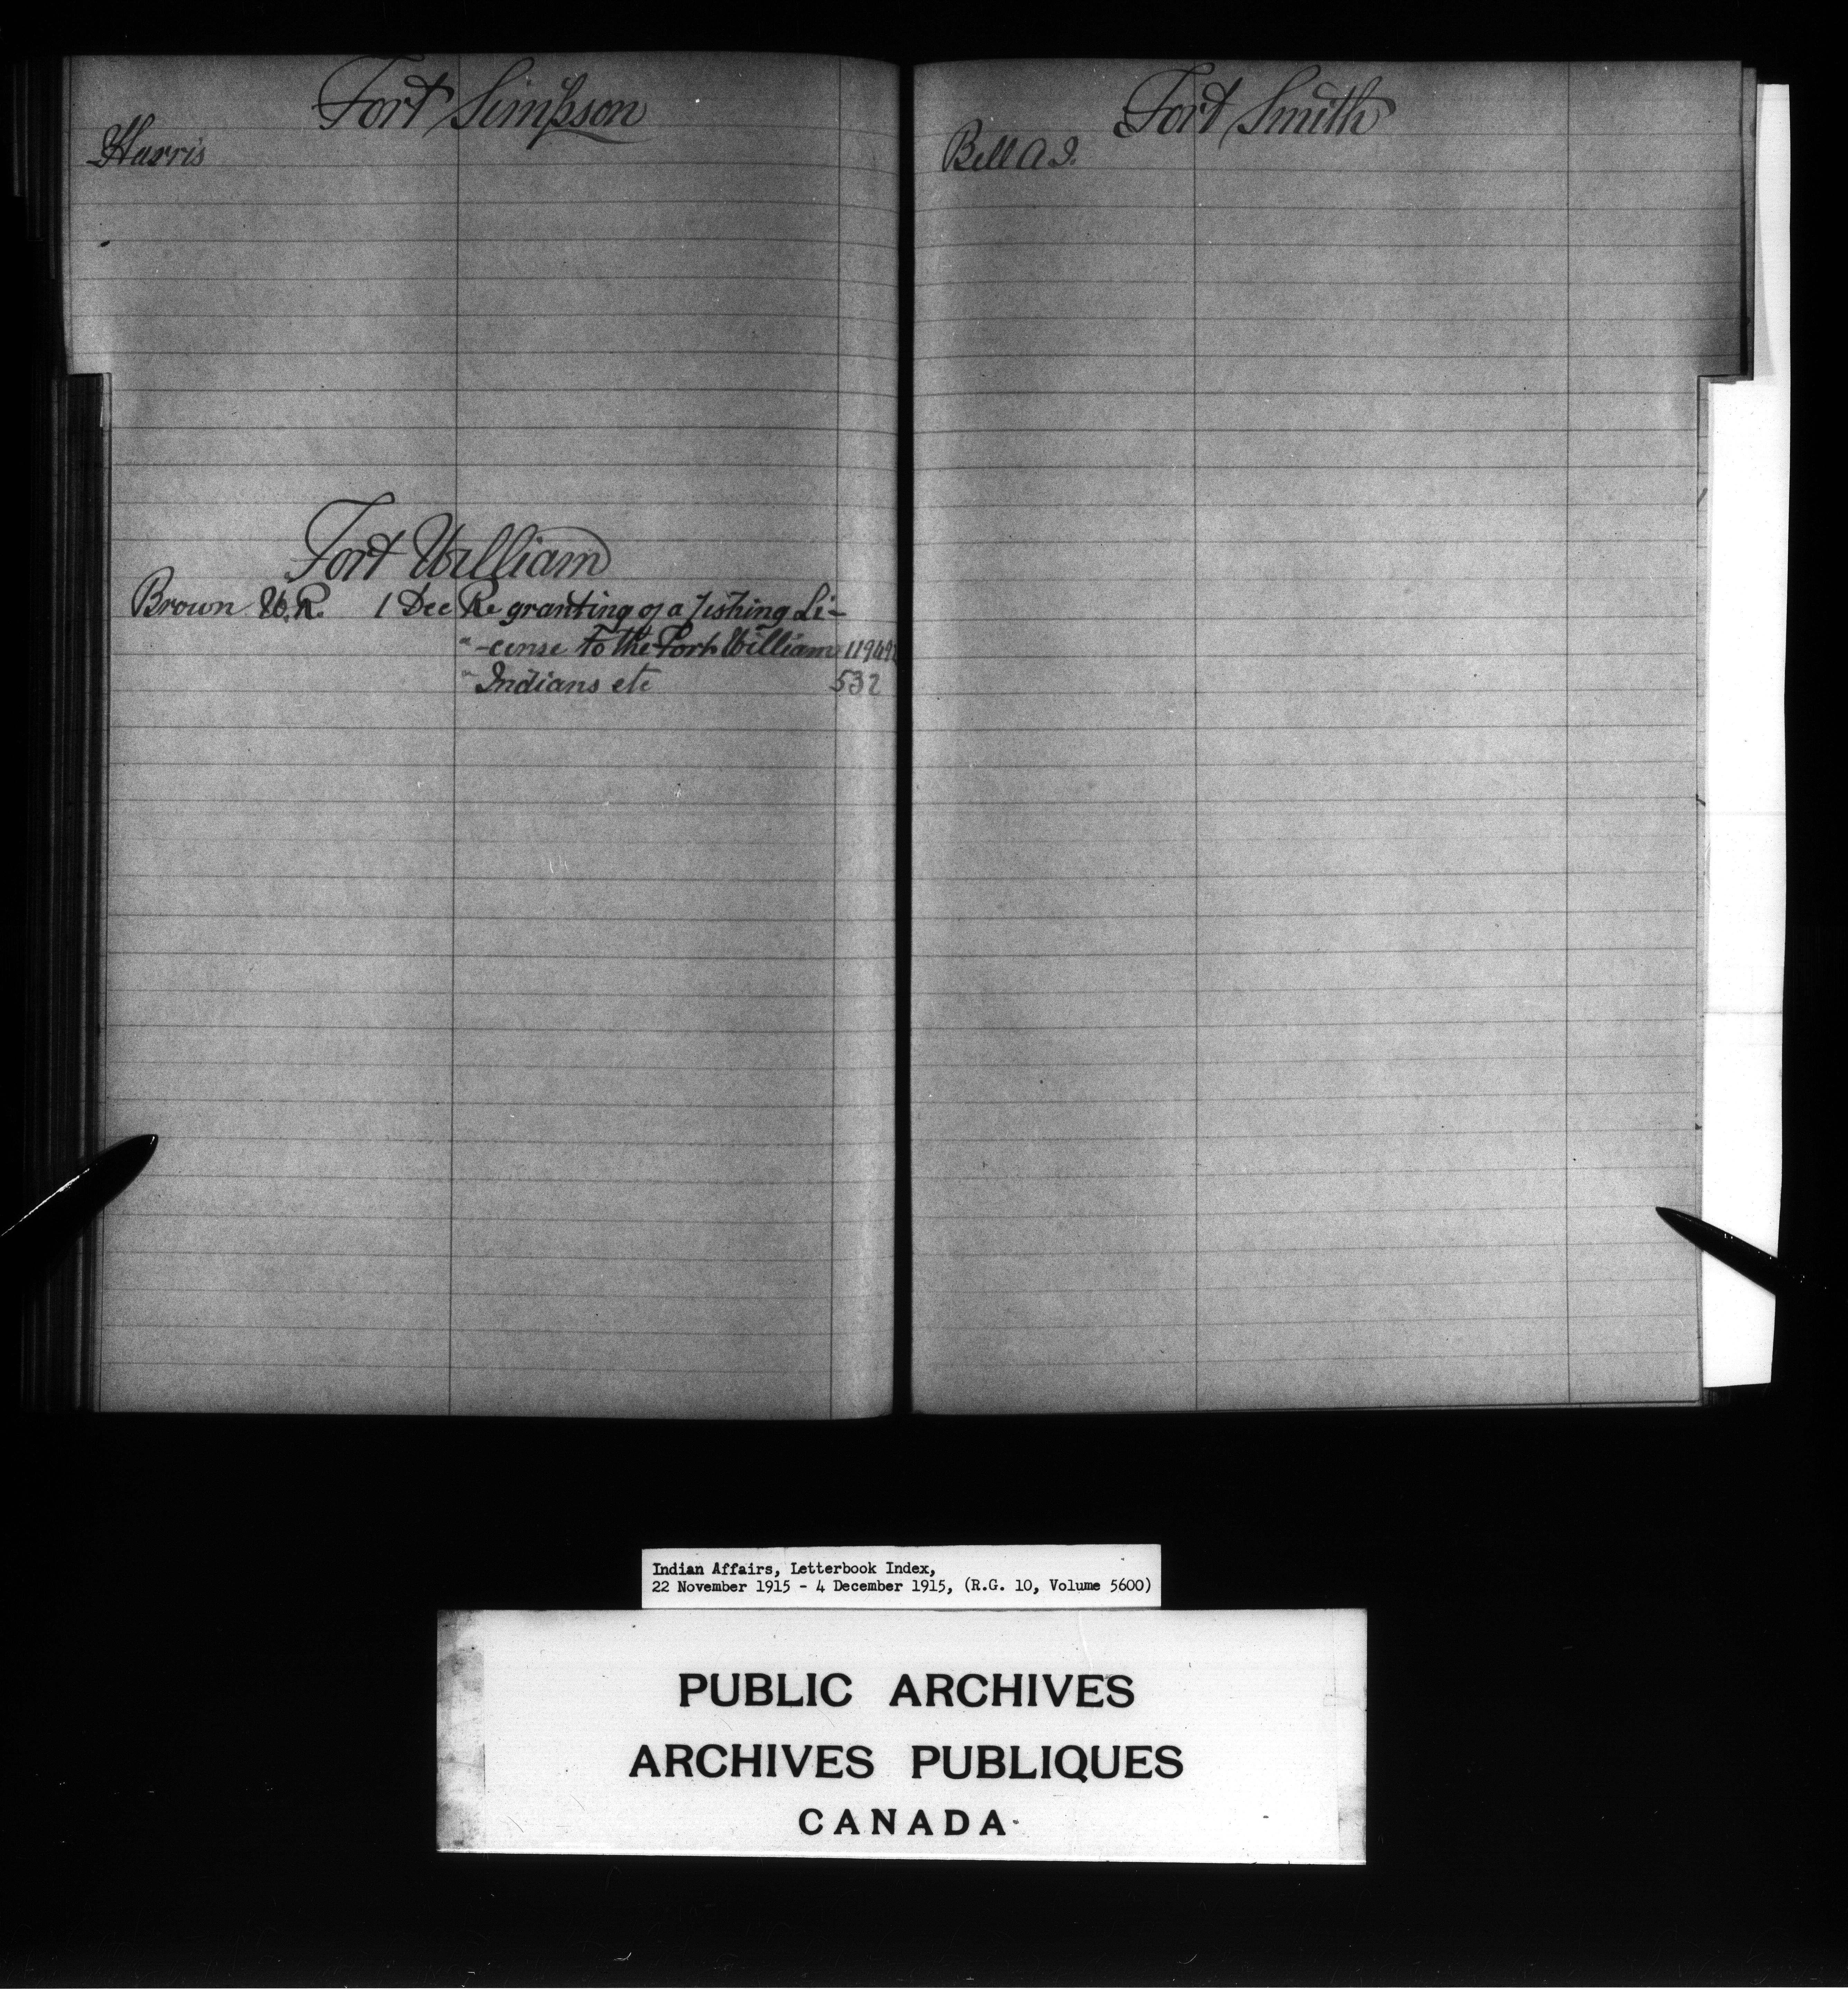 Fort Simpson
Harris
Fort William
Brown W.R. 1 Dec Re granting of a fishing Li-
" -cense to the Fort William
" Indians etc 532
Fort Smith
Bell A.J.
Indian Affairs, Letterbook Index,
22 November 1915 - 4 December 1915, (R.G. 10, Volume 5600)
PUBLIC ARCHIVES
ARCHIVES PUBLIQUES
CANADA